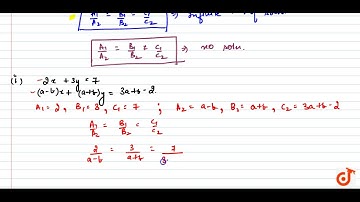 A₁/A₂ = B₁/B₂ = C₁/C₂ ⇒
A₁/A₂ = B₁/B₂ ≠ C₁/C₂ ⇒ no soln.
(i) -2x + 3y = 7
-(a-b)x + (a+b)y = 3a+b-2.
A₁ = 2, B₁ = 3, C₁ = 7 ; A₂ = a-b, B₂ = a+b, C₂ = 3a+b-2
A₁/A₂ = B₁/B₂ = C₁/C₂
2/a-b = 3/a+b = 7/3
doubtnut